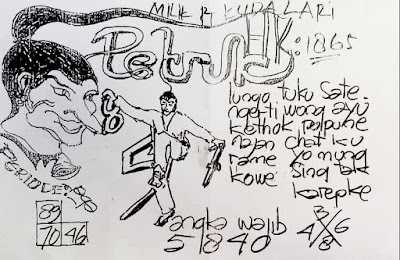 MILIK R KUDA LARI
Petruk HK: 1865
lungo tuku sate
ngerti wong ayu
kethok pupune
nyan chat ku
rame yo mung
kowe sing tak
karepke
PERIODE
89
70 46
angka wajib
5 1 8 4 0
3
4 X 6
8